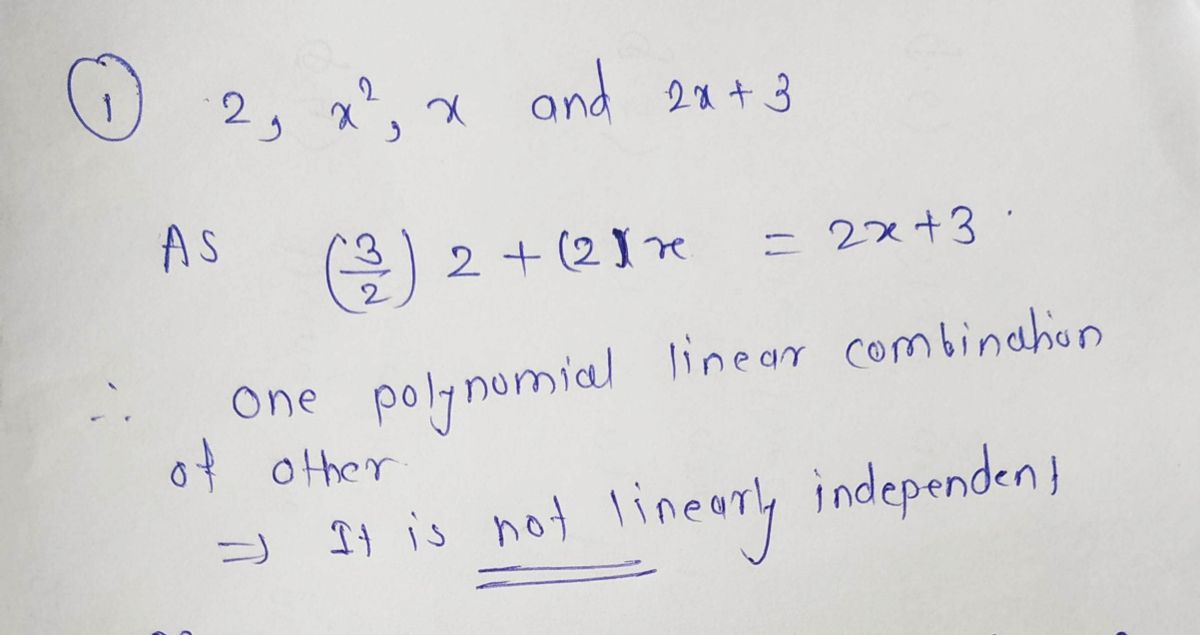 ① 2, x², x and 2x + 3
As (3/2) 2 + (2)x = 2x + 3.
∴ one polynomial linear combination
of other
⇒ It is not linearly independent